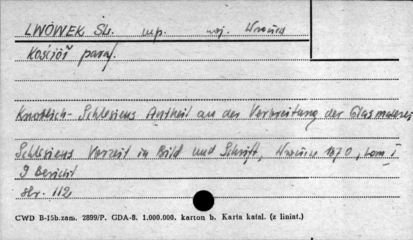 LWÓWEK Śl. up. woj. Wrocław
Kościół paraf.
Knoblich - Schlesiens Antheil an der Verbreitung der Glasmalerei
Schlesiens Vorzeit in Bild und Schrift, Wrocław 1870, tom I
9 Bericht
str. 112
CWD B-15b.zam. 2899/P. GDA-8. 1.000.000. karton b. Karta katal. (z liniat.)